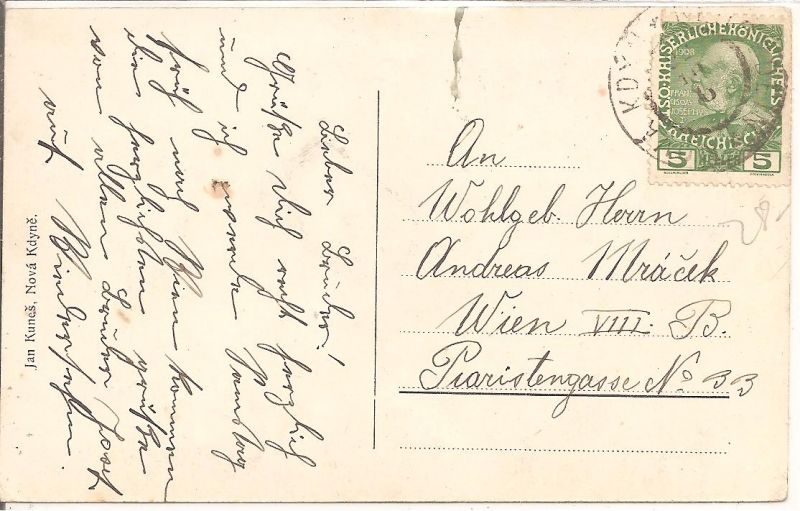 Lieber Bruder!
Grüße Dich recht herzlich
und ich werde Samstag
früh nach Wien kommen
die herzlichsten Grüße
von allen Bruder Josef
auf Wiedersehen.
Jan Kuneš, Nová Kdyně.
An
Wohlgeb. Herrn
Andreas Mráček
Wien VIII. B.
Piaristengasse No 33
KAISERLICHE KÖNIGLICHE
1908
FRANZ
JOSEPH I
5 HELLER 5
28